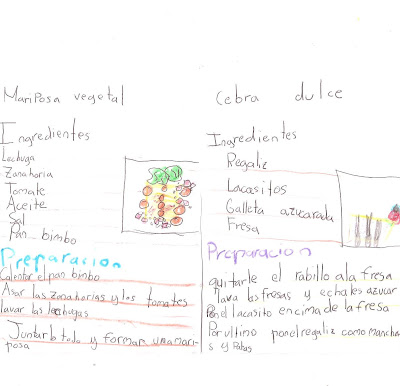 Mariposa vegetal
Ingredientes
Lechuga
Zanahoria
Tomate
Aceite
Sal
Pan bimbo
Preparacion
Calentar el pan bimbo
Asar las zanahorias y los tomates
lavar las lechugas
Juntarlo todo y formar una mari-
posa
Cebra dulce
Ingredientes
Regaliz
Lacasitos
Galleta azucarada
Fresa
Preparacion
quitarle el rabillo a la fresa
lava las fresas y echales azucar
Pon el lacasito encima de la fresa
Por ultimo pon el regaliz como manchas
y patas